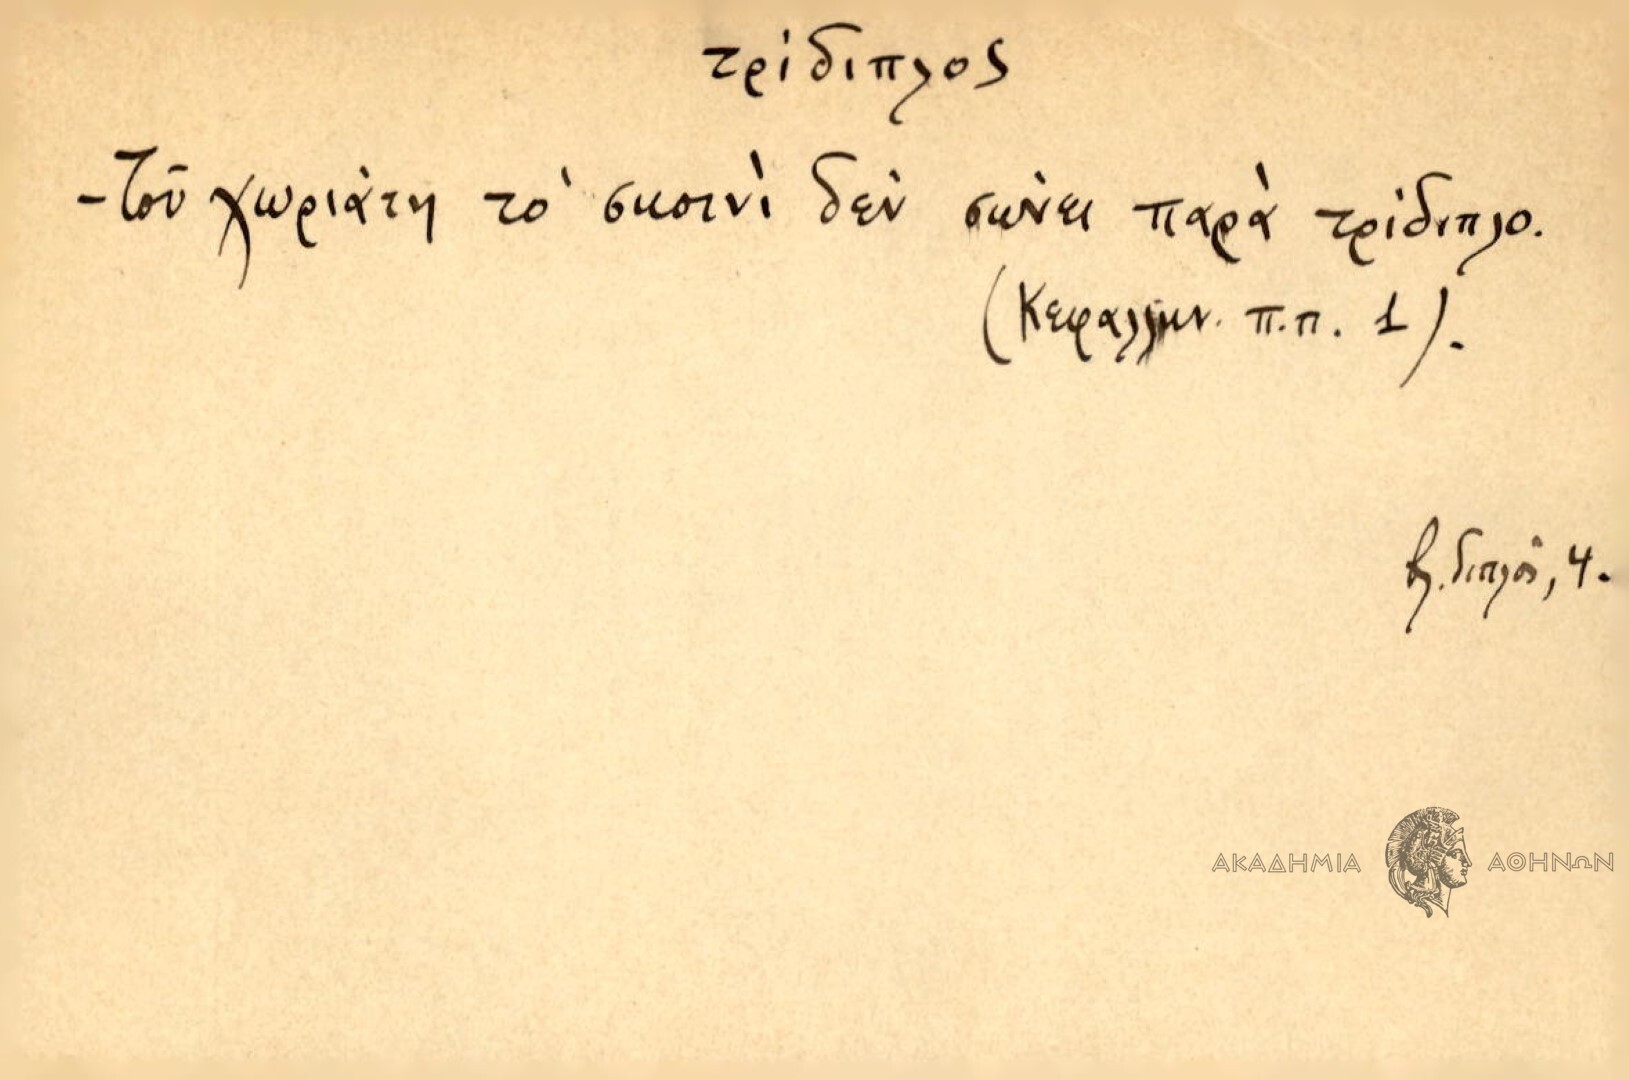 τρίδιπλος
-Τοῦ χωριάτη τὸ σκοινὶ δὲν σώνει παρὰ τρίδιπλο.
(Κεφαλλην. π.π. 1).
βλ. διπλός, 4.
ΑΚΑΔΗΜΙΑ ΑΘΗΝΩΝ